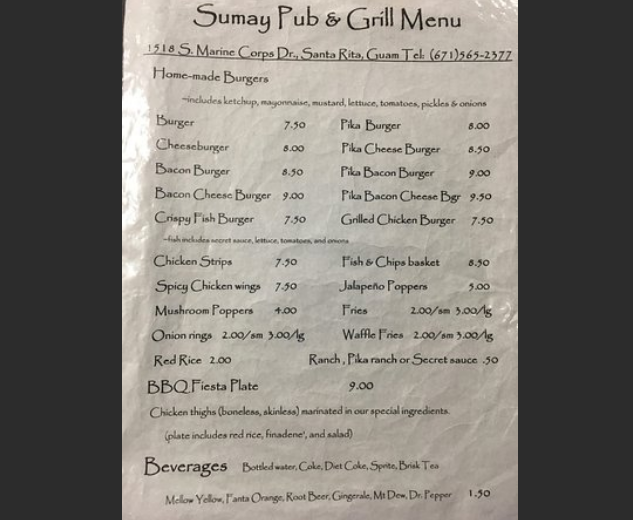 Sumay Pub & Grill Menu
1518 S. Marine Corps Dr., Santa Rita, Guam Tel: (671)565-2377
Home-made Burgers
~includes ketchup, mayonnaise, mustard, lettuce, tomatoes, pickles & onions
Burger 7.50 Pika Burger 8.00
Cheeseburger 8.00 Pika Cheese Burger 8.50
Bacon Burger 8.50 Pika Bacon Burger 9.00
Bacon Cheese Burger 9.00 Pika Bacon Cheese Bgr 9.50
Crispy Fish Burger 7.50 Grilled Chicken Burger 7.50
~fish includes secret sauce, lettuce, tomatoes, and onions
Chicken Strips 7.50 Fish & Chips basket 8.50
Spicy Chicken wings 7.50 Jalapeño Poppers 5.00
Mushroom Poppers 4.00 Fries 2.00/sm 3.00/lg
Onion rings 2.00/sm 3.00/lg Waffle Fries 2.00/sm 3.00/lg
Red Rice 2.00 Ranch, Pika ranch or Secret sauce .50
BBQ Fiesta Plate 9.00
Chicken thighs (boneless, skinless) marinated in our special ingredients.
(plate includes red rice, finadene', and salad)
Beverages Bottled water, Coke, Diet Coke, Sprite, Brisk Tea
Mellow Yellow, Fanta Orange, Root Beer, Gingerale, Mt Dew, Dr. Pepper 1.50